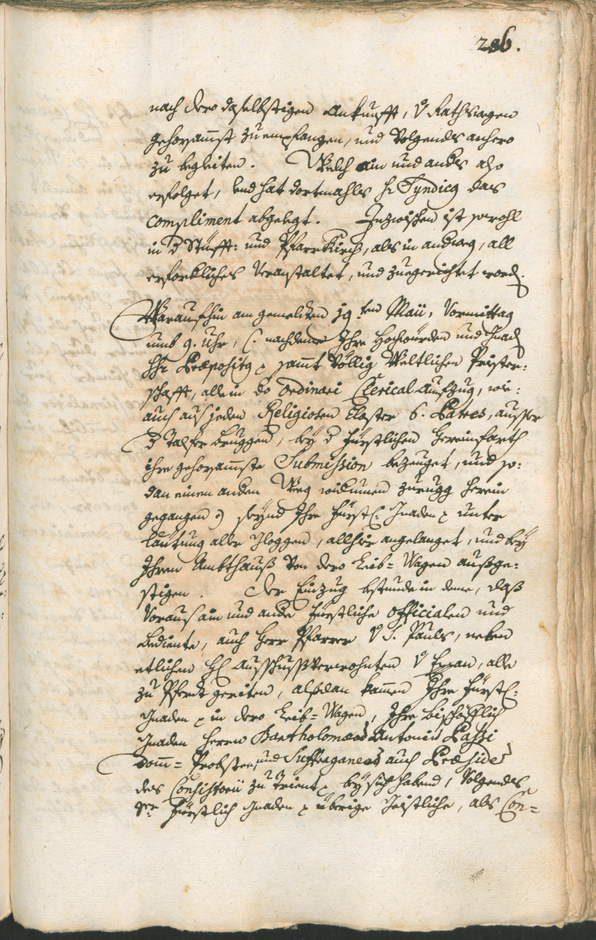 206.
nach dero daselbstigen Ankunfft, v Rathswegen
gehorsamst zu empfangen, und volgends anhero
zu begleiten. Welch ein und anders also
erfolget, und hat dortmahls H: Syndicq das
compliment abgelegt. Inzwischen ist sowohl
in d Stüfft: und Pfarrkirch, als in andweg, all
erforderliches veranstaltet, und zuegerichtet word.
Waraufhin am gemelten 19.ten Maii, Vormittag
umb 9. Uhr, (: nachdeme Ihro Hochwürden und Gnad
Hr: Præpositq sammt völlig Weltlichen Priester-
schafft, alle in do Ordinari Clerical Aufzug, wie-
auch aus jeden Religiosen Closter 6. Patres, ausser
d Talfer bruggen, bey d fürstlichen hereinfarth
ihre gehorsamste Submission bezeuget, und so-
dan einen anden Weg widumen zurugg herein
gegangen :) seynd Ihre fürstl: Gnaden unter
Leuttung aller Gloggen, allhier angelanget, und bey
Ihrem Ambthauß von dero Leib-Wagen außge-
stigen. Der Einzug bestunde in deme, daß
Voraus ain und ande fürstliche Officialen und
bediente, auch Herr Pfarrer v S. Pauls, neben
etlichen Außschußverwohnten v Eppan, alle
zu Pferdt geriten, alßdan kammen Ihre fürstl:
Gnaden in dero Leib-Wagen, Ihre bischöfflich
Gnaden Herrn Bartholomæus Antoniq Passi
Dom-Probsten, und Suffraganeus auch Præsides
des Consistorii zu Trient bey sich habend, Volgends
Sr: fürstlich Gnaden übrige Geistliche, als Con-